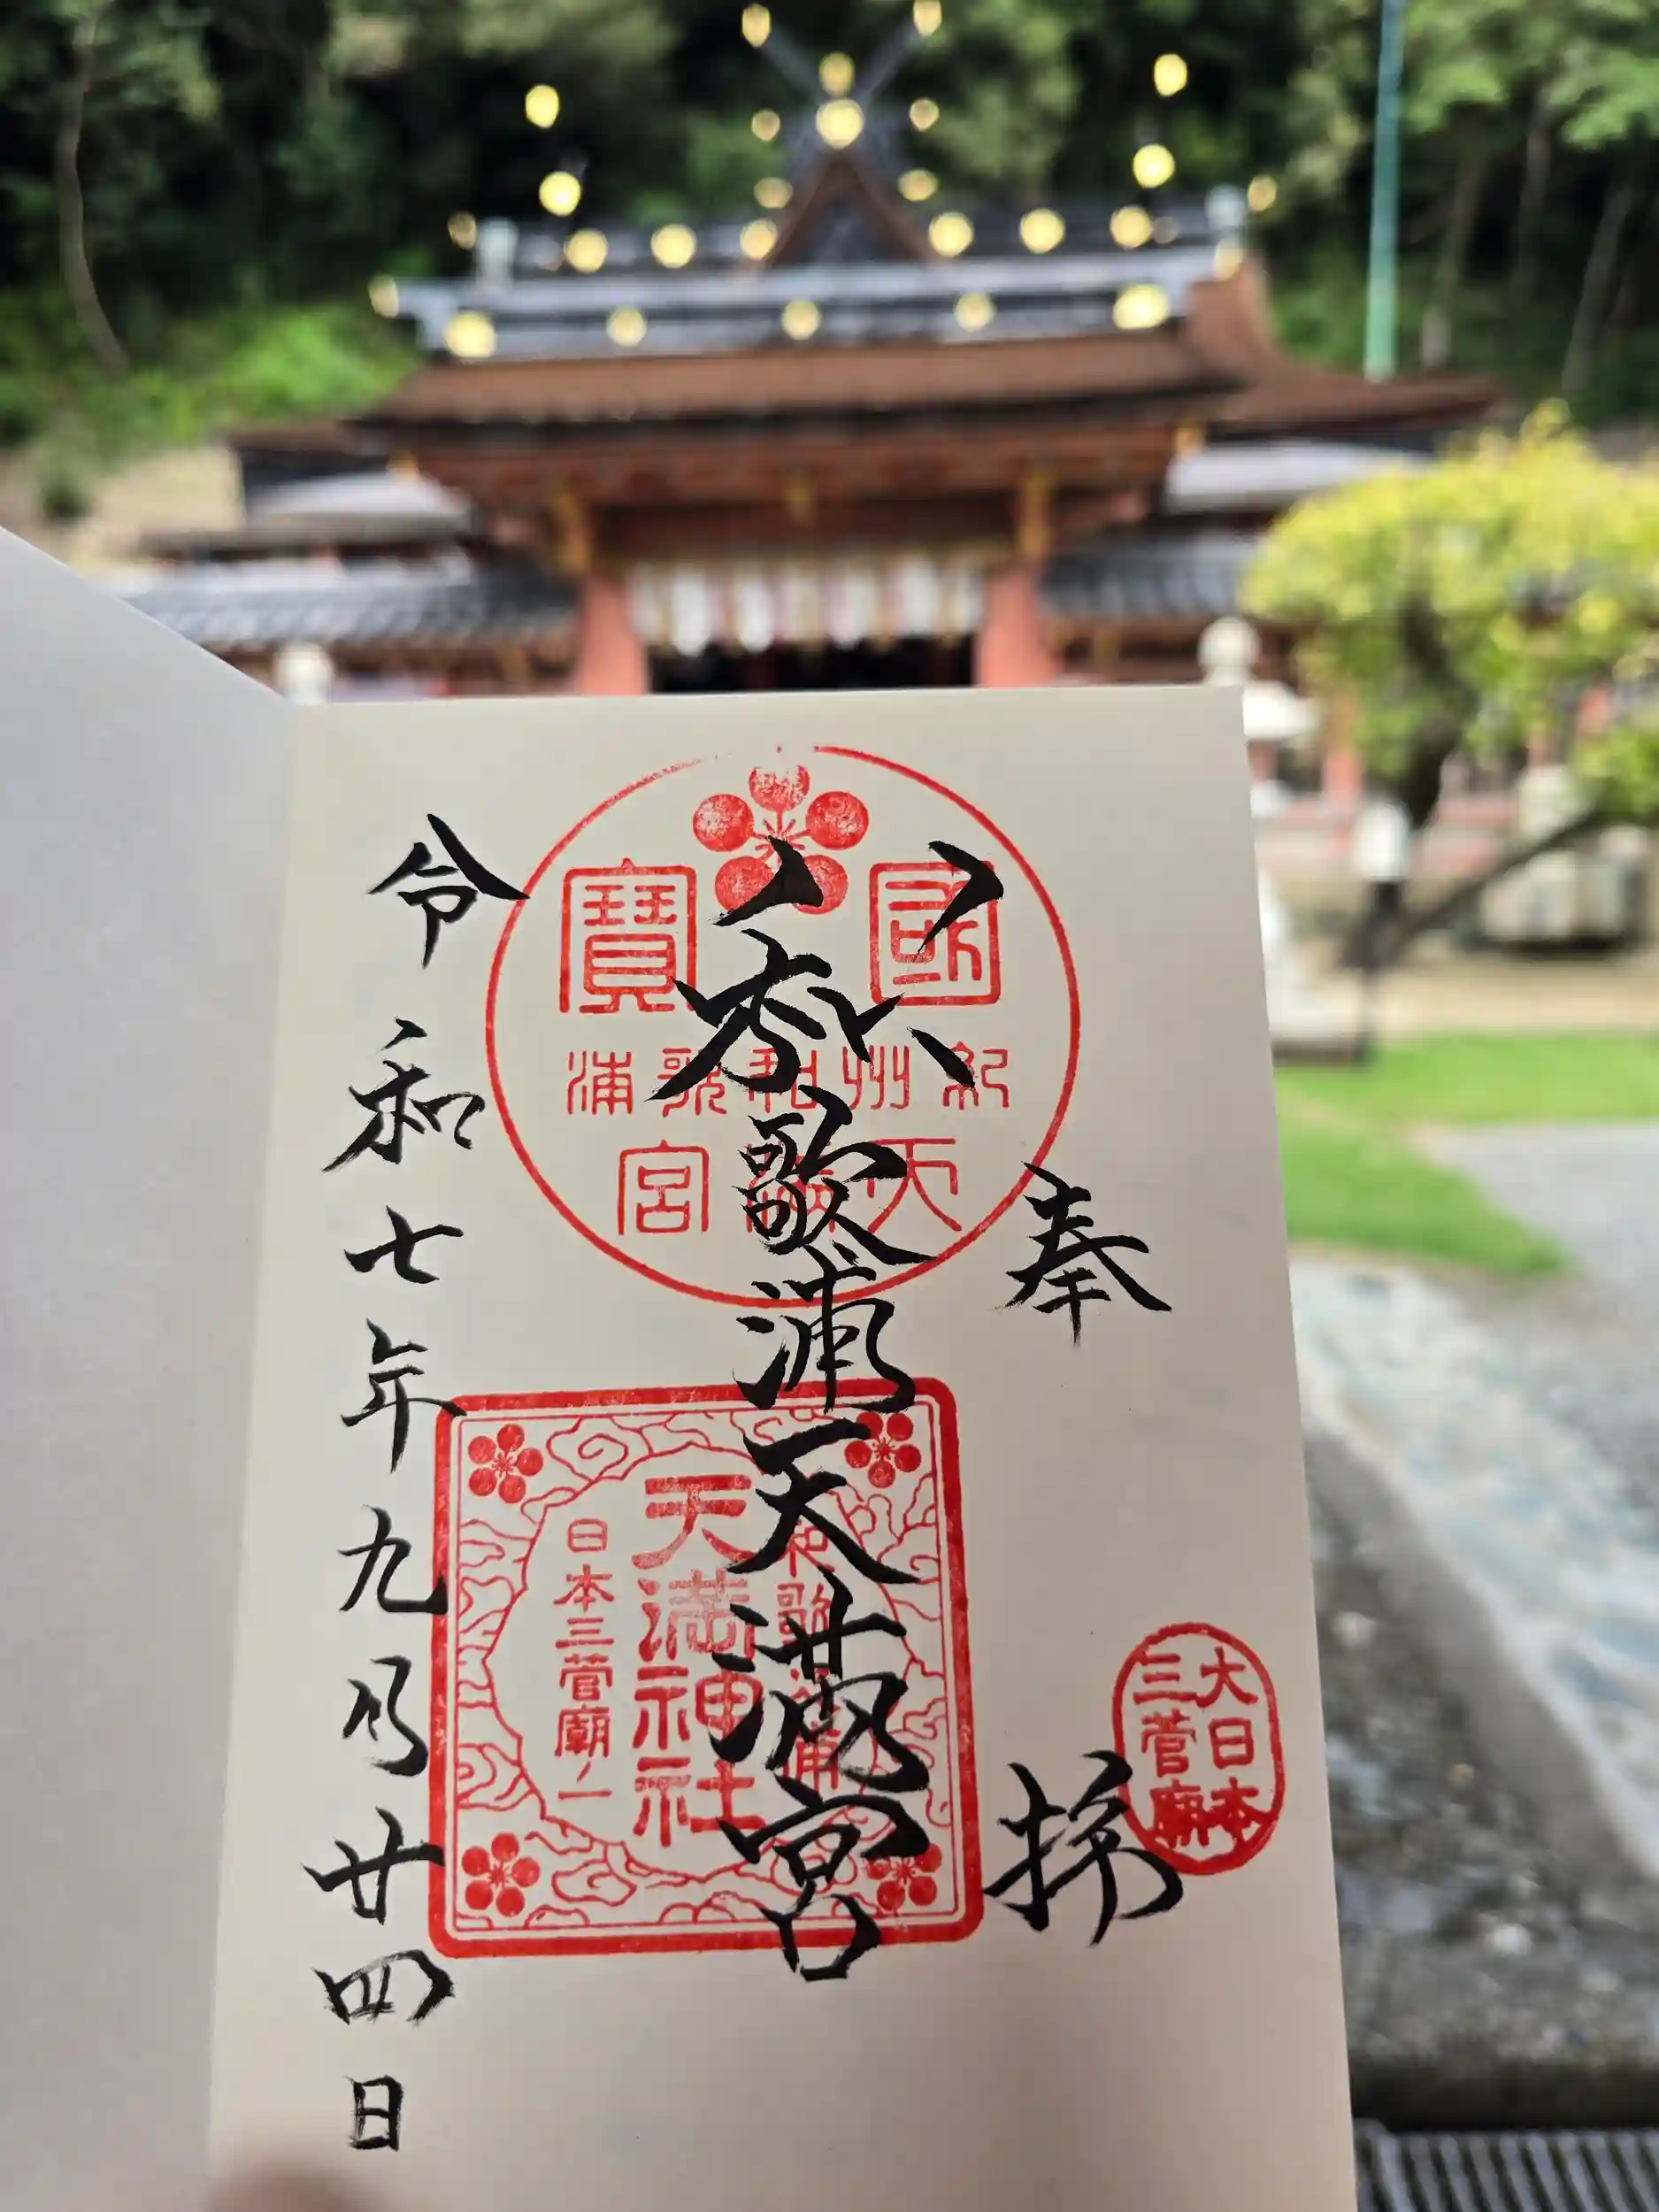 奉拝
大日本
三菅廟
國寶
紀州和歌浦
天満宮
和歌浦天満宮
和歌浦
天満神社
日本三菅廟ノ一
令和七年九月廿四日